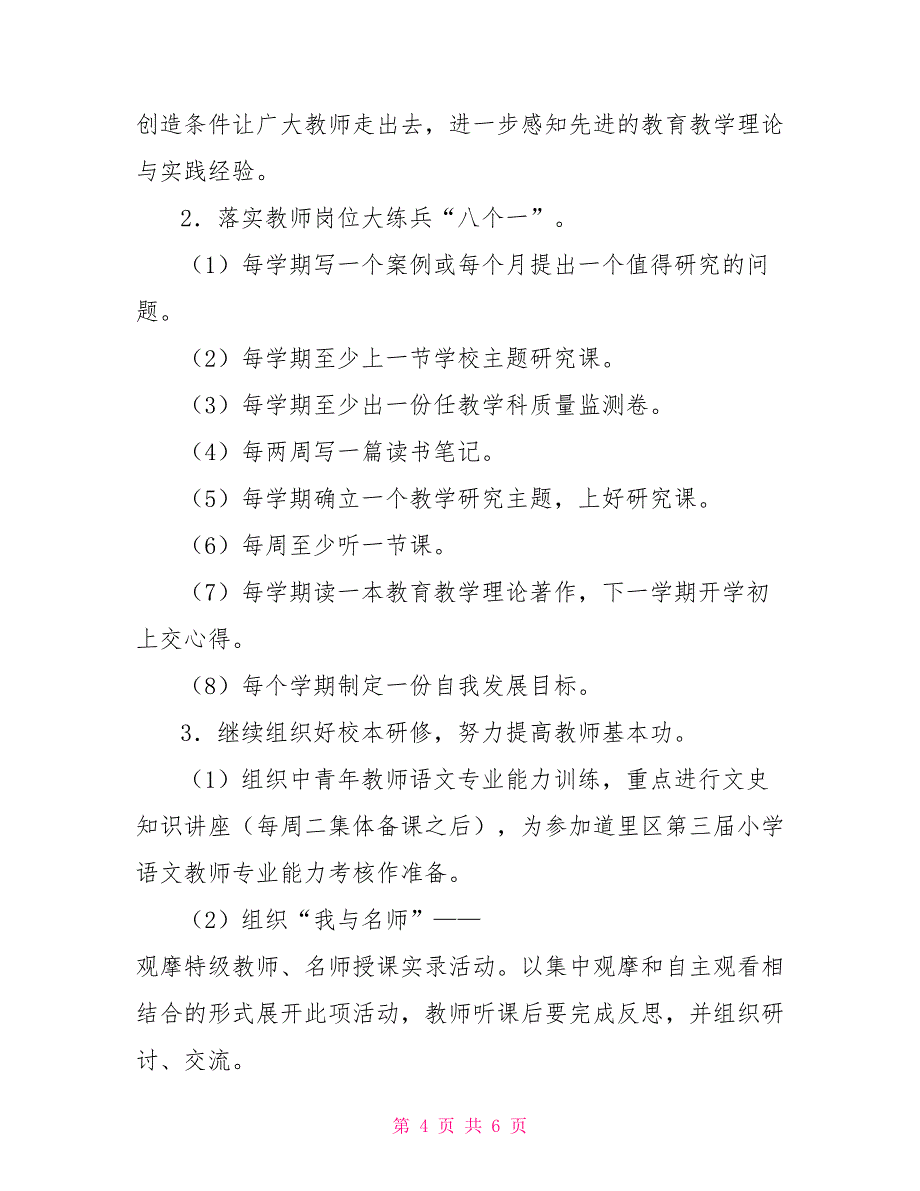 创造条件让广大教师走出去，进一步感知先进的教育教学理论
与实践经验。
2．落实教师岗位大练兵“八个一”。
（1）每学期写一个案例或每个月提出一个值得研究的问
题。
（2）每学期至少上一节学校主题研究课。
（3）每学期至少出一份任教学科质量监测卷。
（4）每两周写一篇读书笔记。
（5）每学期确立一个教学研究主题，上好研究课。
（6）每周至少听一节课。
（7）每学期读一本教育教学理论著作，下一学期开学初
上交心得。
（8）每个学期制定一份自我发展目标。
3．继续组织好校本研修，努力提高教师基本功。
（1）组织中青年教师语文专业能力训练，重点进行文史
知识讲座（每周二集体备课之后），为参加道里区第三届小学
语文教师专业能力考核作准备。
（2）组织“我与名师”——
观摩特级教师、名师授课实录活动。以集中观摩和自主观看相
结合的形式展开此项活动，教师听课后要完成反思，并组织研
讨、交流。
第 4 页 共 6 页